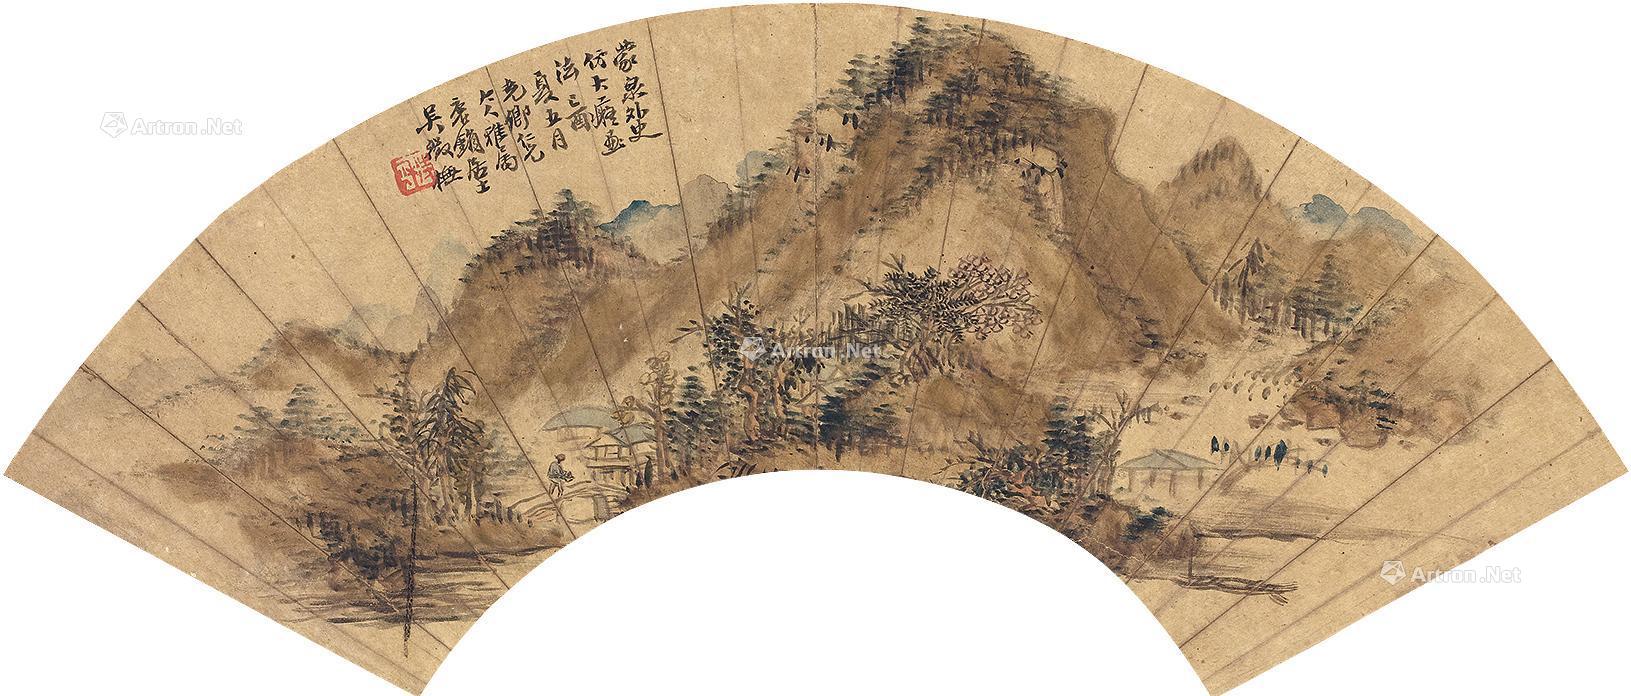 蒙泉外史
仿大癡画
法己酉
夏五月
尧卿仁兄
大人雅属
老鐵居士
吴徵樵
Artron.Net
Artron.Net
Artron.Net